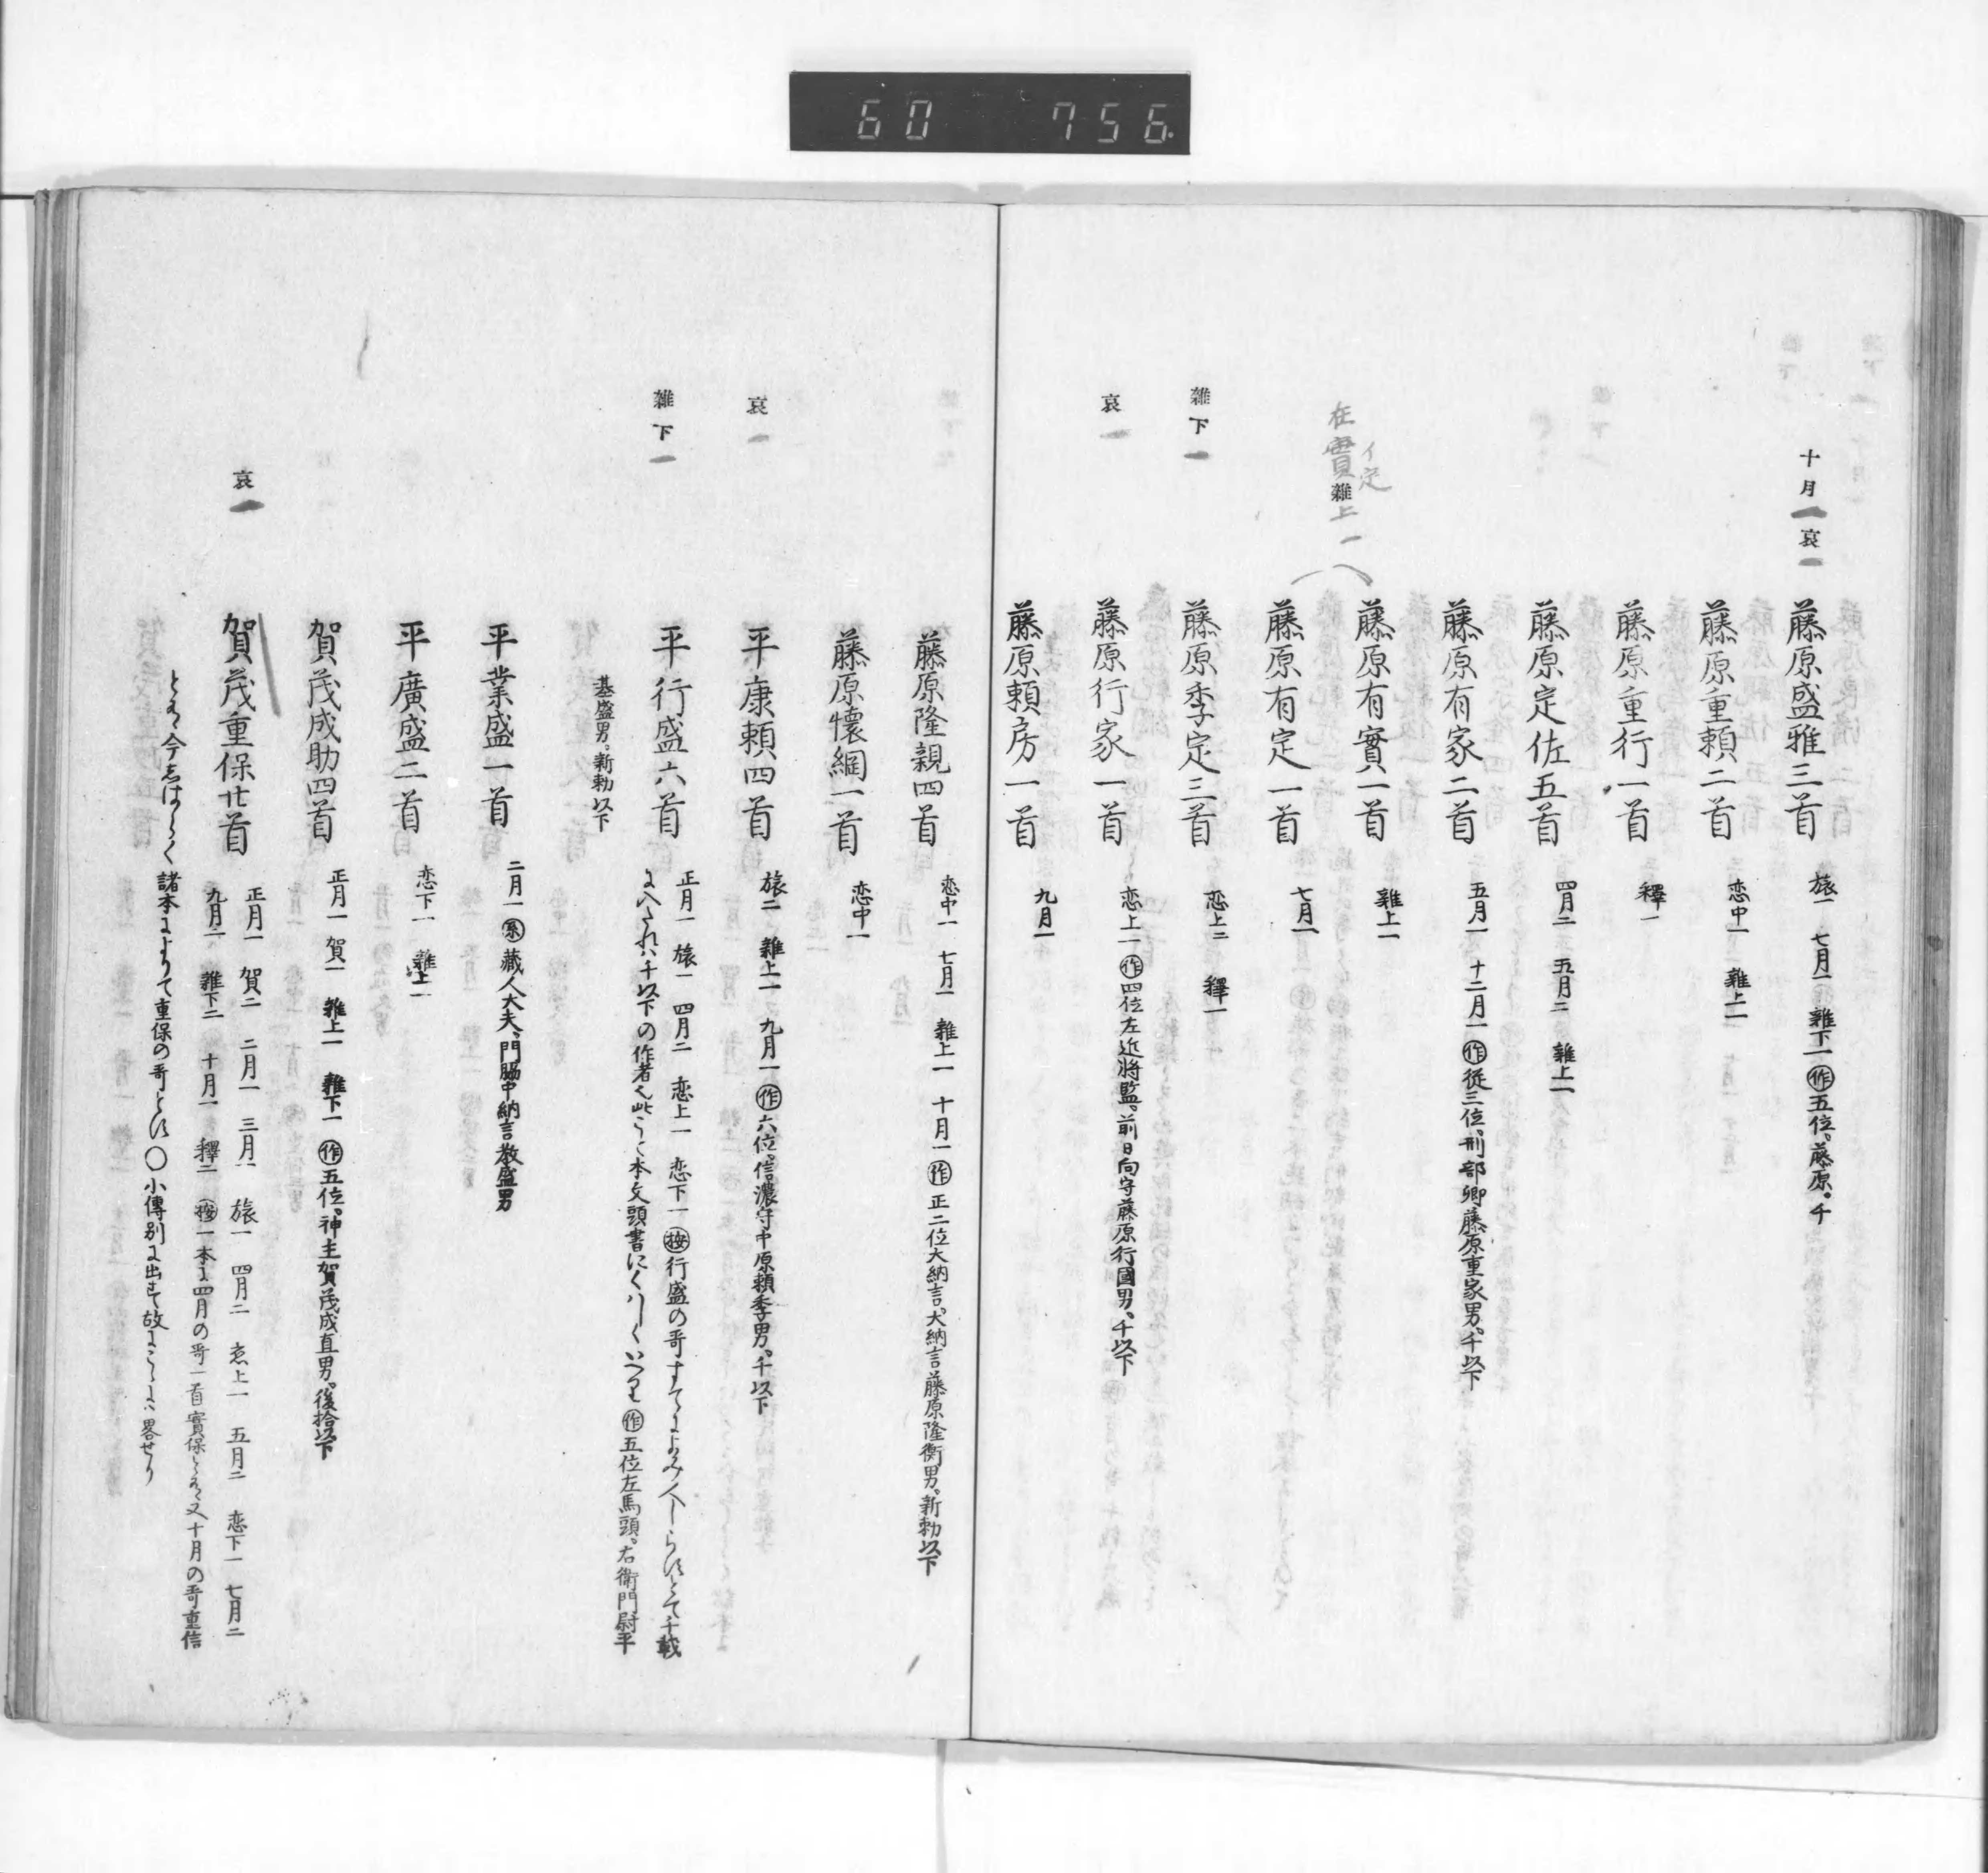 60 756
十月一 哀一
藤原盛雅三首 旅一 七月一 雜下一 作 五位。藤原。千
藤原重頼二首 恋中一 雜上一
藤原重行一首 釋一
藤原定佐五首 四月二 五月二 雜上一
藤原有家二首 五月一 十二月一 作 従三位、刑部卿藤原重家男。千以下
藤原有實一首 雜上一
在實 イ定 雜上一
藤原有定一首 七月一
雜下一
藤原季定三首 恋上二 釋一
哀一
藤原行家一首 恋上一 作 四位左近將監。前日向守藤原行國男。千以下
藤原頼房一首 九月一
藤原隆親四首 恋中一 七月一 雜上一 十月一 作 正二位大納言、大納言藤原隆衡男。新勅以下
藤原懐綱一首 恋中一
哀一
平康頼四首 旅二 雜上一 九月一 作 六位。信濃守中原頼季男。千以下
雜下一
平行盛六首 正月一 旅一 四月二 恋上一 恋下一 按 行盛の哥すてによみ人しらすとて千載
に入られハ千以下の作者也此こと本文頭書にくハしくいへり 作 五位左馬頭。右衛門尉平
基盛男。新勅以下
平業盛一首 二月一 系 藏人大夫、門脇中納言教盛男
平廣盛二首 恋下一 雜上一
賀茂成助四首 正月一 賀一 雜上一 雜下一 作 五位。神主賀茂成直男。後拾以下
哀一
賀茂重保廿首 正月一 賀二 二月一 三月一 旅一 四月二 恋上一 五月二 恋下一 七月二
九月一 雜下二 十月一 釋二 按 一本に四月の哥一首實保とあり又十月の哥重信
とあり今しはらく諸本によりて重保の哥とす〇小傳別に出せり故にこゝにハ畧せり